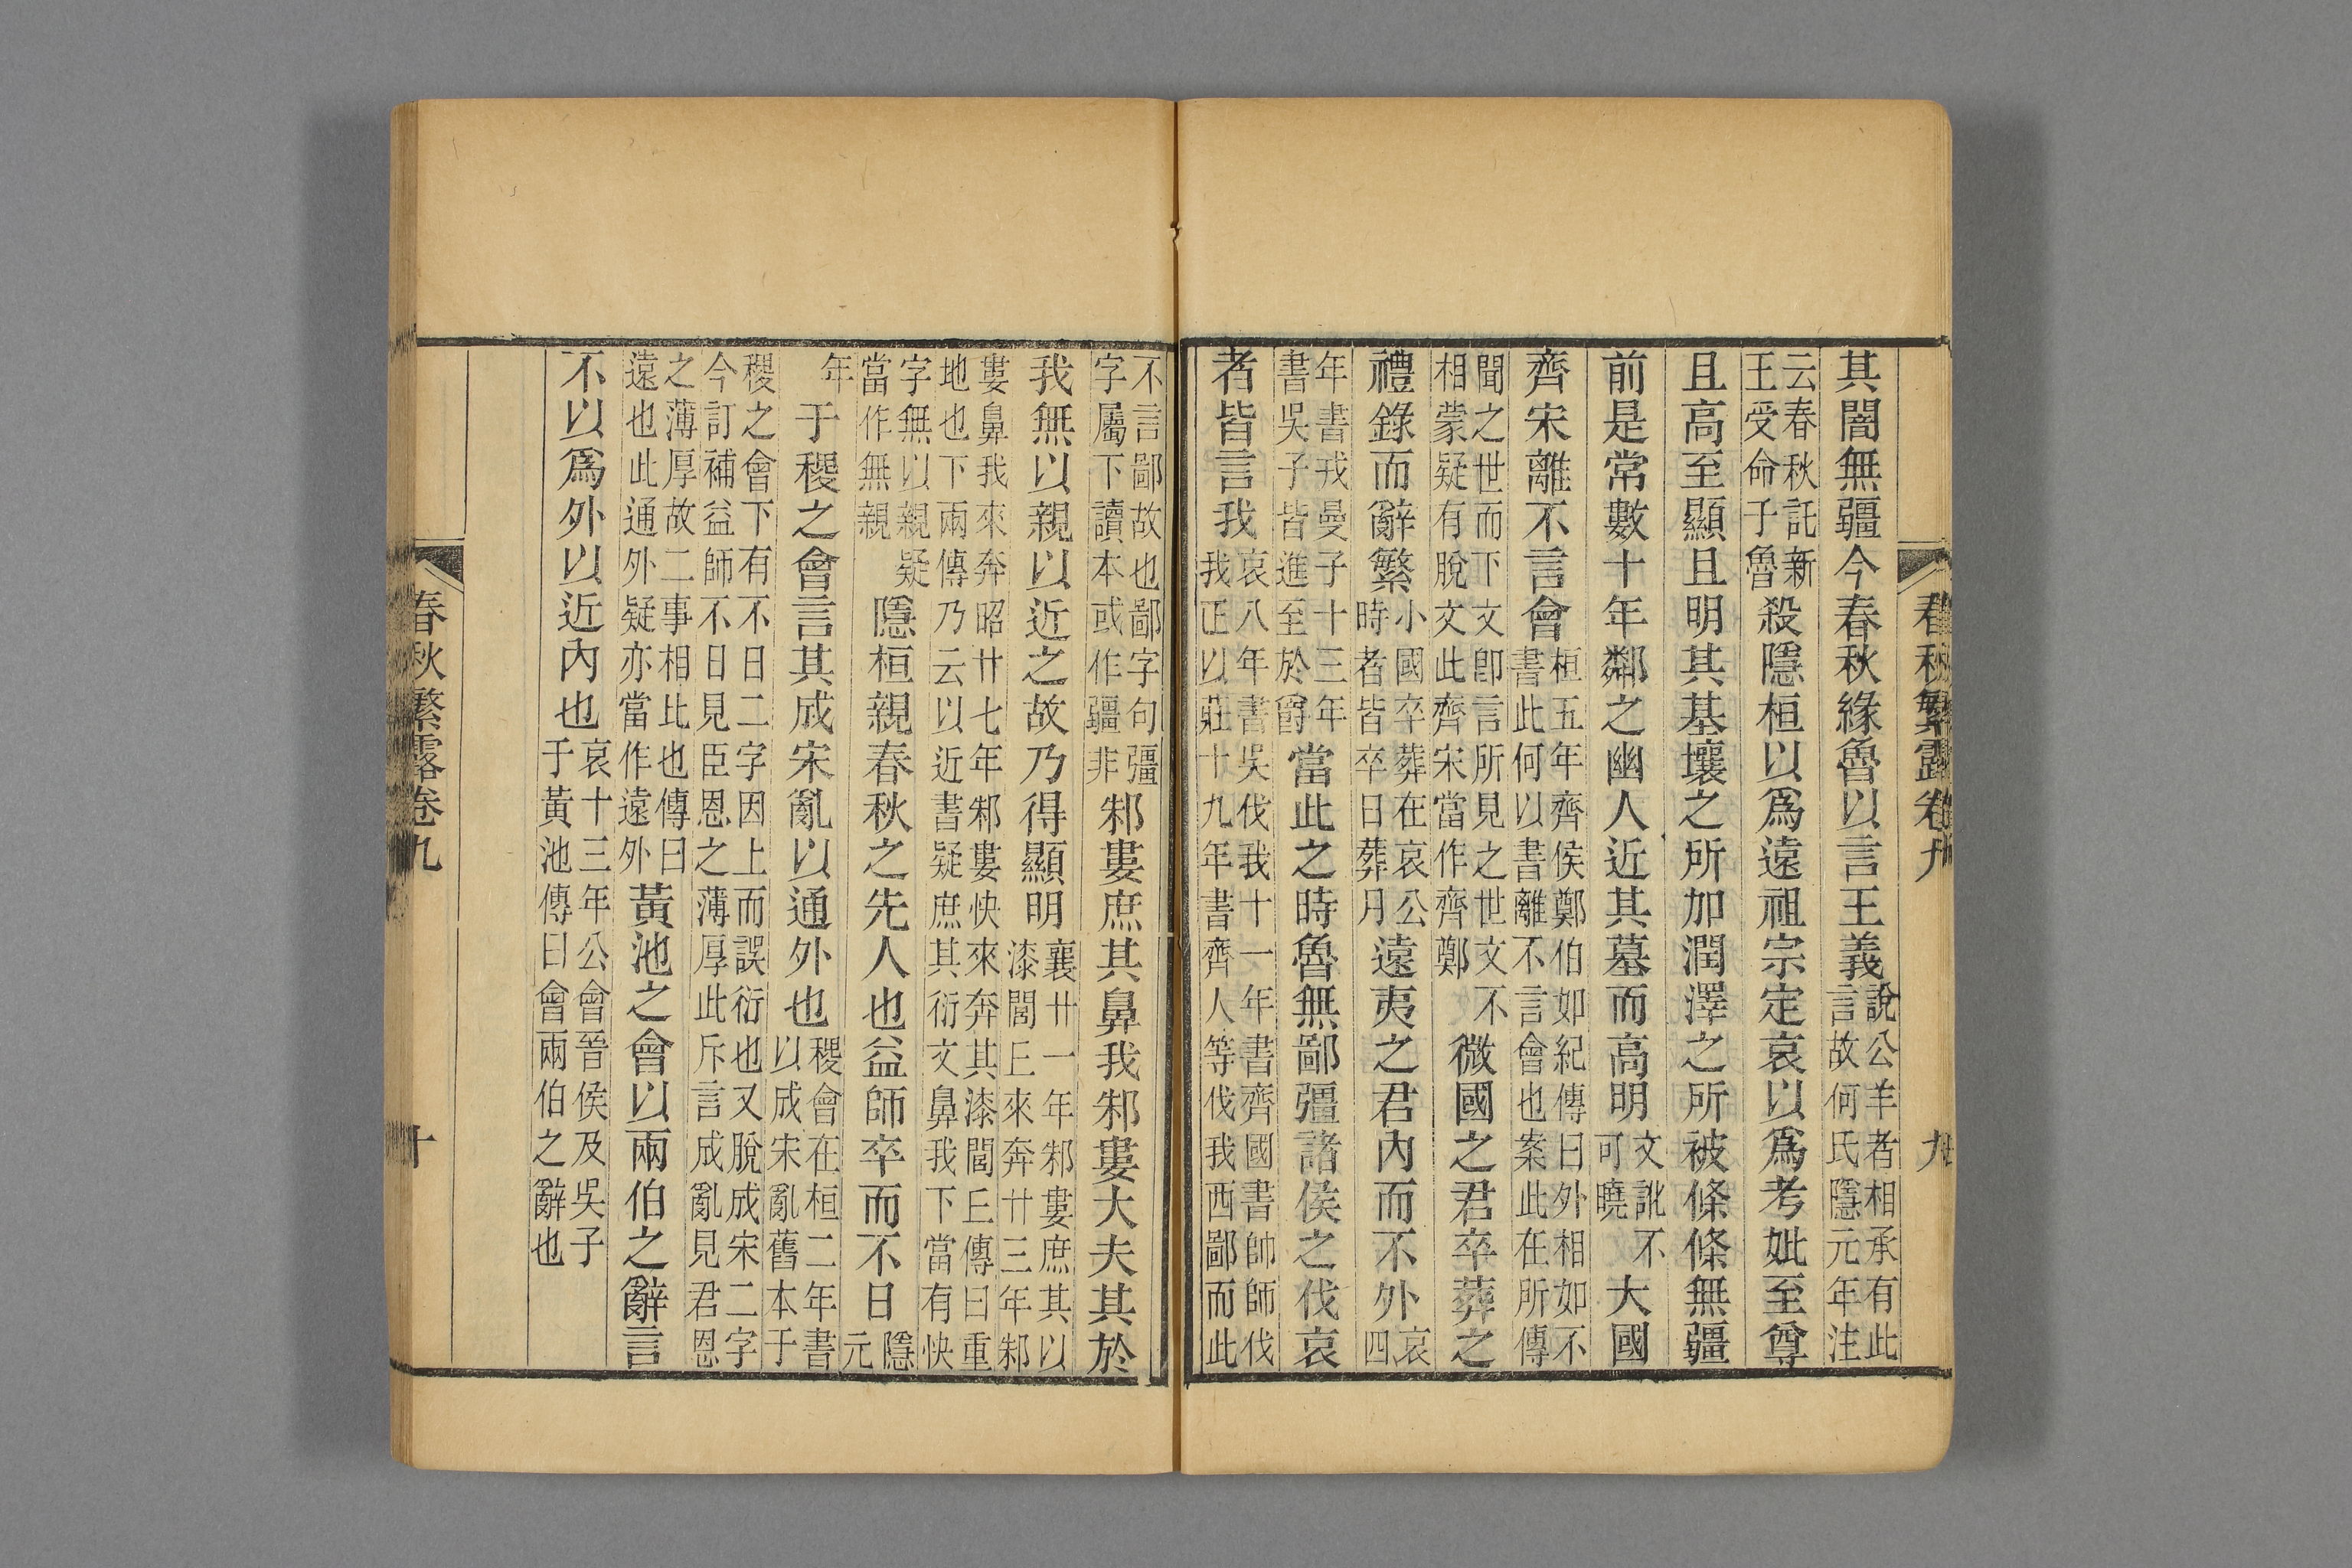 春秋繁露卷九 九
其闇無疆今春秋緣魯以言王義說公羊者相承有此言故何氏隱元年注
云春秋託新王受命子魯殺隱桓以爲遠祖宗定哀以爲考妣至尊
且高至顯且明其基壤之所加潤澤之所被條條無疆
前是常數十年鄰之幽人近其墓而高明文訛不可曉大國
齊宋離不言會桓五年齊侯鄭伯如紀傳曰外相如不書此何以書離不言會也案此在所傳
聞之世而下文卽言所見之世文不相蒙疑有脫文此齊宋當作齊鄭微國之君卒葬之
禮錄而辭繁小國卒葬在哀公時者皆卒日葬月遠夷之君內而不外哀四
年書戎曼子十三年書吳子皆進至於爵當此之時魯無鄙彊諸侯之伐哀
者皆言我哀八年書吳伐我十一年書齊國書帥師伐我正以莊十九年書齊人等伐我西鄙而此
不言鄙故也鄙字句彊字屬下讀本或作疆非邾婁庶其鼻我邾婁大夫其於
我無以親以近之故乃得顯明襄廿一年邾婁庶其以漆閭丘來奔廿三年邾
婁鼻我來奔昭廿七年邾婁快來奔其漆閭丘傳曰重地也下兩傳乃云以近書疑庶其衍文鼻我下當有快
字無以親疑當作無親隱桓親春秋之先人也益師卒而不日隱元
年于稷之會言其成宋亂以通外也稷會在桓二年書以成宋亂舊本于
稷之會下有不日二字因上而誤衍也又脫成宋二字今訂補益師不日見臣恩之薄厚此斥言成亂見君恩
之薄厚故二事相比也傳曰遠也此通外疑亦當作遠外黃池之會以兩伯之辭言
不以爲外以近內也哀十三年公會晉侯及吳子于黃池傳曰會兩伯之辭也
春秋繁露卷九 十